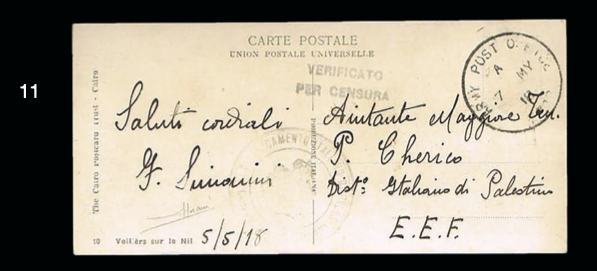 11
CARTE POSTALE
UNION POSTALE UNIVERSELLE
VERIFICATO
PER CENSURA
ARMY POST OFFICE
A
7 MY
18
Saluti cordiali
F. Simonini
5/5/18
Aiutante Maggiore Ten.
P. Cherico
Dist.º Italiano di Palestina
E.E.F.
The Cairo Postcard Trust - Cairo
10 Voiliers sur le Nil